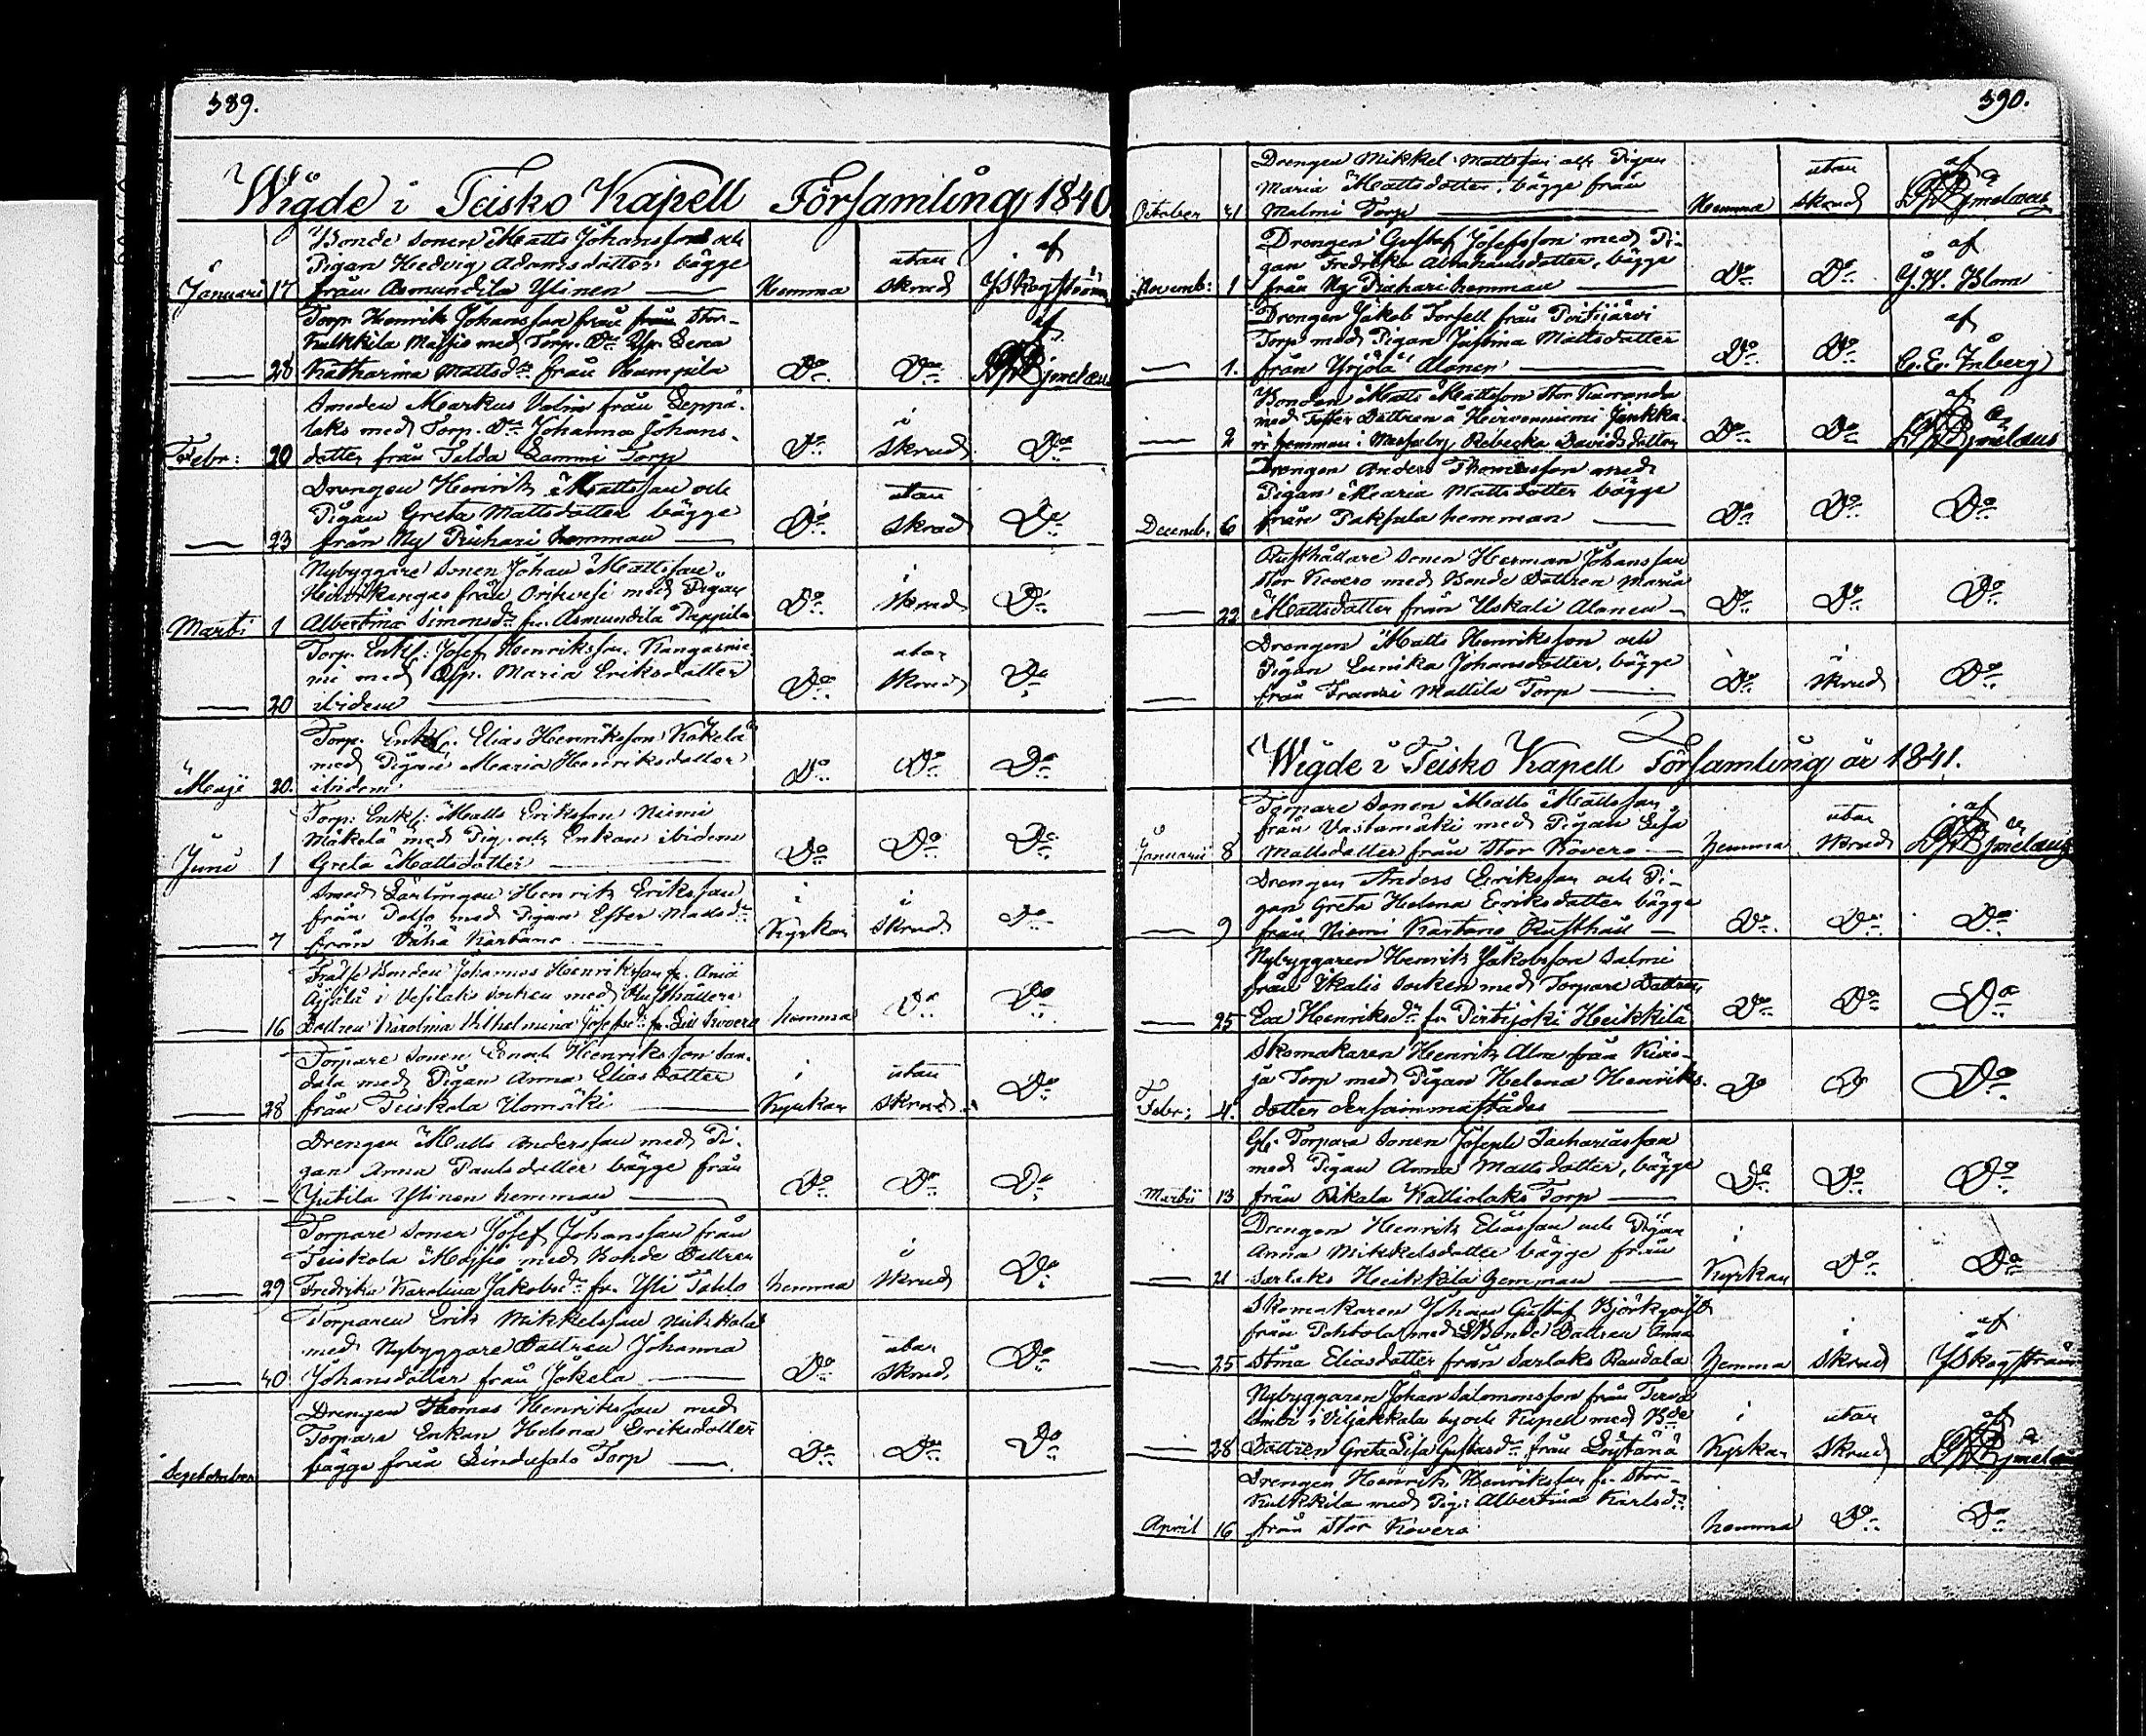 389.
Wigde i Teisko Kapell Församling 1840.
Januari 17 Bonde Sonen Matts Johansson och
Pigan Hedvig Adamsdotter bägge
från Asmundila Ylinen Hemma utan skrud af Skogström
28 Torp. Henrik Johansson från från Stor-
Kulkkila Maijio med Torp. Drn Up. Lena
Katharina Mattsdr från Kampila Do Do af
Febr: 20 Smeden Markus Valin från Leppä-
laks med Torp. Dr Johanna Johans-
dotter från Lammi Torp Do i skrud Do
23 Drengen Henrik Mattsson och
Pigan Greta Mattsdotter bägge
från Ny Piuhari hemman Do utan skrud Do
Marti 1 Nybyggare Sonen Johan Mattsson
Heinikangas från Orihvesi med Pigan
Albertina Simonsdr fr. Asmundila Pappila Do i skrud Do
20 Torp. Enkl: Josef Henriksson Kangasnie-
mi med Up. Maria Eriksdotter
ibidem Do utan skrud Do
Maji 20. Torp. Enkl: Elias Henriksson Kökelä
med Pigan Maria Henriksdotter
ibidem Do Do Do
Juni 1 Torp: Enkl: Matts Eriksson Niemi
Mäkelä med Pig. och Enkan ibidem
Greta Mattsdotter Do Do Do
7 Smeds Lärlingen Henrik Eriksson
från med Pigan Ester Mattsdr
från Vähä i Kyrkan i skrud Do
16 Frälse Bonden Johannes Henriksson fr.
Äijälä i Vesilaks Socken med Rusthållare
Dottren Karolina Vilhelmina Josefsdr fr. Kovero hemma Do Do
28 Torpare Sonen Enoch Henriksson San-
dala med Pigan Anna Eliasdotter
från Teiskola Ilomäki i Kyrkan utan skrud Do
Drengen Matts Andersson med Pi-
gan Anna Paulsdotter bägge från
Jutila Ylinen hemman Do Do Do
29 Torpare Sonen Josef Johansson från
Teiskola Maijio med Bonde Dottren
Fredrika Karolina Jakobsdr fr. Yli Pohlo hemma i skrud Do
40 Torparen Erik Mikkelsson
med Nybyggare Dottren Johanna
Johansdotter från Jokela Do utan skrud Do
September Drengen Thomas Henriksson med
Torpare Enkan Helena Eriksdotter
bägge från Torp Do Do Do
390.
October 21 Drengen Mikkel Mattsson och Pigan
Maria Mattsdotter, bägge från
Malmi Torp Hemma utan skrud af
Novemb: 1 Drengen Gustaf Josefsson med Pi-
gan Fredrika Abrahamsdotter, bägge
från Ny Piuhari hemman Do Do af J. W. Blom
1. Drengen Jakob Forsell från Portijärvi
Torp med Pigan Justina Mattsdotter
från Yrjölä Alanen Do Do af C. E. Inberg
2 Bonden Matts Mattsson Stor Kuoranda
med Foster Dottren å Hirvenniemi
hemman i Messuby, Rebecka Davidsdotter Do Do af
Decemb. 6 Drengen Anders Thomasson med
Pigan Maria Mattsdotter bägge
från Paksula hemman Do Do Do
22 Rusthållare Sonen Herman Johansson
Stor Kovero med Bonde Dottren Maria
Mattsdotter från Uskali Alanen Do Do Do
Drengen Matts Henriksson och
Pigan Eerika Johansdotter, bägge
från Fransi Mattila Torp Do i skrud Do
Wigde i Teisko Kapell Församling år 1841.
Januarii 8 Torpare Sonen Matts Mattsson
från Vastamäki med Pigan Lisa
Mattsdotter från Stor Kovero hemma utan skrud af
9 Drengen Anders Eriksson och Pi-
gan Greta Helena Eriksdotter bägge
från Niemi Karteno Rusthåll Do Do Do
25 Nybyggaren Henrik Jakobsson Salmi
från Ikalis socken med Torpare Dottren
Eva Henriksdr fr Pirttijoki Heikkilä Do Do Do
Febr: 4. Skomakaren Henrik Alm från Kivio-
ja Torp med Pigan Helena Henriks-
dotter dersammastädes Do Do Do
Martii 13 Gl. Torpare Sonen Joseph Zachariasson
med Pigan Anna Mattsdotter, bägge
från Rikala Kalliolaks Torp Do Do Do
21 Drengen Henrik Eliasson och Pigan
Anna Mikkelsdotter bägge från
Sarlaks Heikkilä hemman i Kyrkan Do Do
25 Skomakaren Johan Gustaf Björkqvist
från Pohtola med Bonde Dottren Anna
Stina Eliasdotter från Sarlaks Raudala hemma i skrud af Skogström
28 Nybyggaren Johan Salomonsson från
i Viljakkala by och Kapell med Bde
Dottren Greta Lisa Gustafsdr från Löytänä i Kyrkan utan skrud af
April 16 Drengen Henrik Henriksson fr. Stor-
Kulkkila med Pig: Albertina Karlsdr
från Stor Kovero hemma Do Do